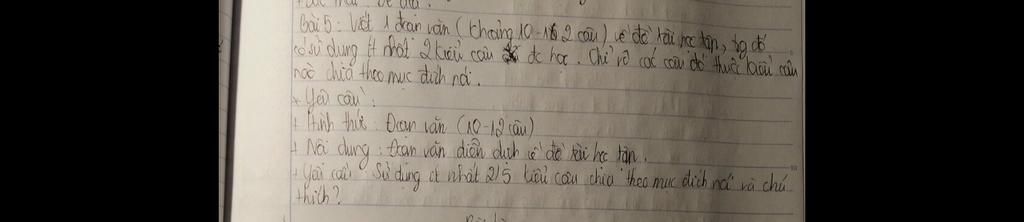 Bài 5: Viết 1 đoạn văn (khoảng 10-12 câu) về đề tài học tập, tg đó
có sử dụng ít nhất 2 kiểu câu đc học. Chỉ rõ các câu đó thuộc kiểu câu
nào chia theo mục đích nói.
* Yêu cầu:
+ Hình thức: Đoạn văn (10-12 câu)
+ Nội dung: Đoạn văn diễn dịch về đề tài học tập.
+ Yêu cầu: Sử dụng ít nhất 2/5 kiểu câu chia theo mục đích nói và chú
thích?